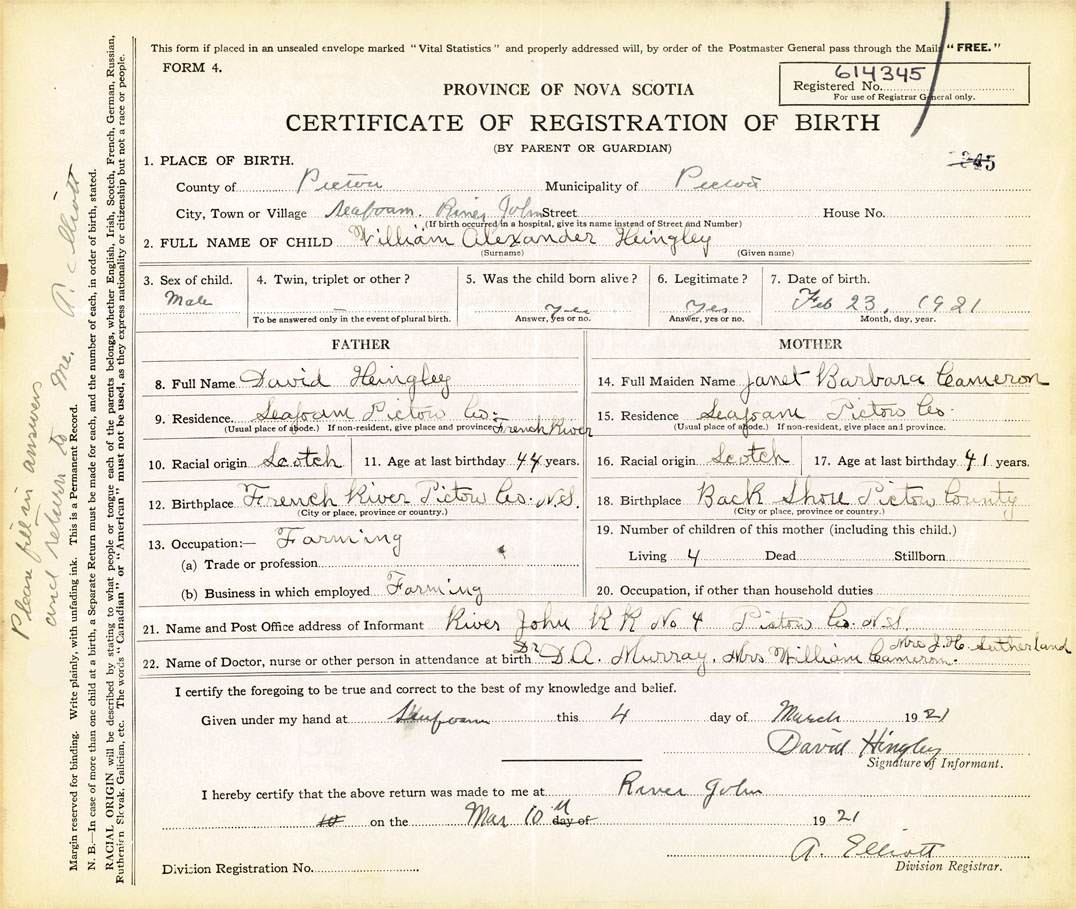 This form if placed in an unsealed envelope marked "Vital Statistics" and properly addressed will, by order of the Postmaster General pass through the Mails "FREE."
FORM 4.
614345
Registered No.
For use of Registrar General only.
PROVINCE OF NOVA SCOTIA
CERTIFICATE OF REGISTRATION OF BIRTH
(BY PARENT OR GUARDIAN)
1. PLACE OF BIRTH.
County of Pictou Municipality of Pictou
City, Town or Village Seafoam. River John Street House No.
(If birth occurred in a hospital, give its name instead of Street and Number)
2. FULL NAME OF CHILD William Alexander Heingley
(Surname) (Given name)
3. Sex of child. 4. Twin, triplet or other? 5. Was the child born alive? 6. Legitimate? 7. Date of birth.
Male Yes Yes Feb 23, 1921
To be answered only in the event of plural birth. Answer, yes or no. Answer, yes or no. Month, day, year.
FATHER
8. Full Name David Heingley
9. Residence Seafoam Pictow Co.
(Usual place of abode.) If non-resident, give place and province French River
10. Racial origin Scotch 11. Age at last birthday 44 years.
12. Birthplace French River Pictow Co. N.S.
(City or place, province or country.)
13. Occupation:— Farming
(a) Trade or profession
(b) Business in which employed Farming
MOTHER
14. Full Maiden Name Janet Barbara Cameron
15. Residence Seafoam Pictow Co.
(Usual place of abode.) If non-resident, give place and province.
16. Racial origin Scotch 17. Age at last birthday 41 years.
18. Birthplace Back Shore Pictow County
(City or place, province or country.)
19. Number of children of this mother (including this child.)
Living 4 Dead Stillborn
20. Occupation, if other than household duties
21. Name and Post Office address of Informant River John RR No. 4 Pictow Co. N.S.
22. Name of Doctor, nurse or other person in attendance at birth Dr D.A. Murray, Mrs William Cameron. Mrs J.H. Sutherland
I certify the foregoing to be true and correct to the best of my knowledge and belief.
Given under my hand at Seafoam this 4 day of March 1921
David Hingley
Signature of Informant.
I hereby certify that the above return was made to me at River John
10 on the Mar 10 day of 1921
A. Elliott
Division Registrar.
Division Registration No.
Please fill in answers
and return to me. A. Elliott
Margin reserved for binding. Write plainly, with unfading ink. This is a Permanent Record.
N. B.—In case of more than one child at a birth, a Separate Return must be made for each, and the number of each, in order of birth, stated.
RACIAL ORIGIN will be described by stating to what people or tongue each of the parents belongs, whether English, Irish, Scotch, French, German, Russian,
Ruthenian Slovak, Galician, etc. The words "Canadian" or "American" must not be used, as they express nationality or citizenship but not a race or people.